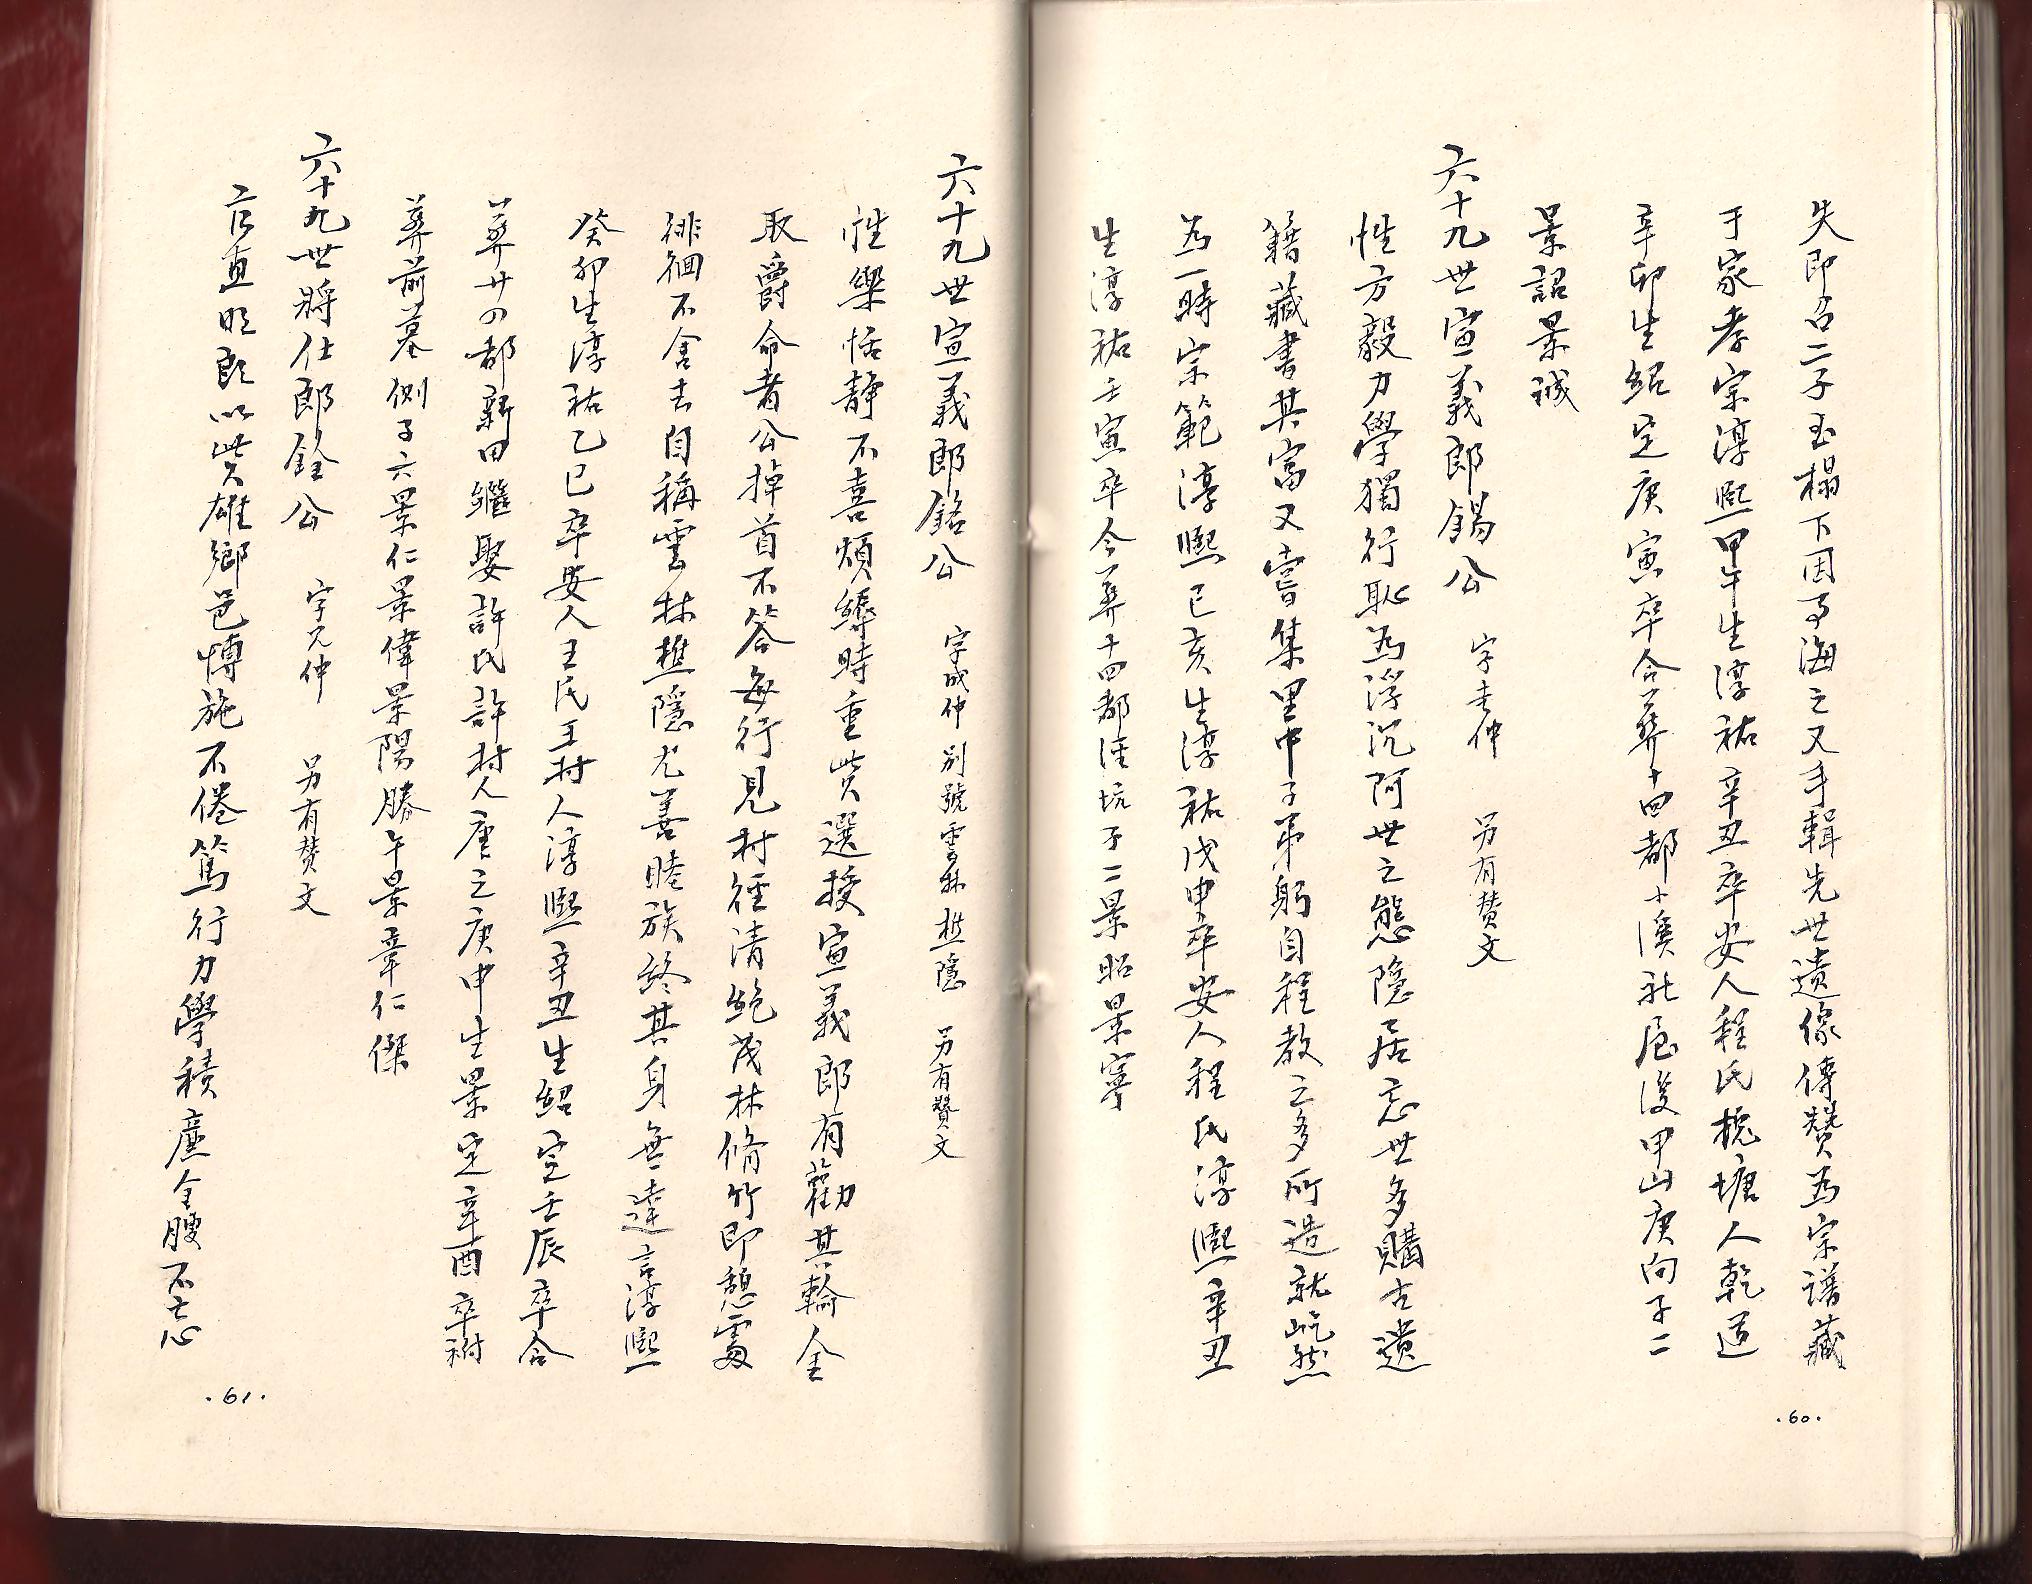 失即召二子玉榻下因而海之又手輯先世遺像傳贊為宗譜藏
于家孝宗淳熙甲午生淳祐辛丑卒安人程氏槐塘人乾道
辛卯生紹定庚寅卒合葬十四都小溪社屋後甲山庚向子二
景詔景誠
六十九世宣義郎錫公 字圭仲 另有贊文
性方毅力學獨行恥為浮沉阿世之態隱居忘世多購古遺
籍藏書其富又嘗集里中子弟躬自程教之多所造就屹然
為一時宗範淳熙己亥生淳祐戊申卒安人程氏淳熙辛丑
生淳祐壬寅卒合葬十四都汪坑子二景昭景寧
·60·
六十九世宣義郎銘公 字成仲別號雲林樵隱 另有贊文
性樂恬靜不喜煩縟時重貲選授宣義郎有勸其輸金
取爵命者公掉首不答每行見村徑清絕茂林脩竹即憩處
徘徊不舍去自稱雲林樵隱尤善睦族終其身無違言淳熙
癸卯生淳祐乙巳卒安人王氏王村人淳熙辛丑生紹定壬辰卒合
葬廿四都新田繼娶許氏許村人唐之庚申生景定辛酉卒祔
葬前墓側子六景仁景偉景陽勝午景章仁傑
六十九世將仕郎銓公 字元仲 另有贊文
以貲雄鄉邑博施不倦篤行力學積廩全腴不忘
·61·